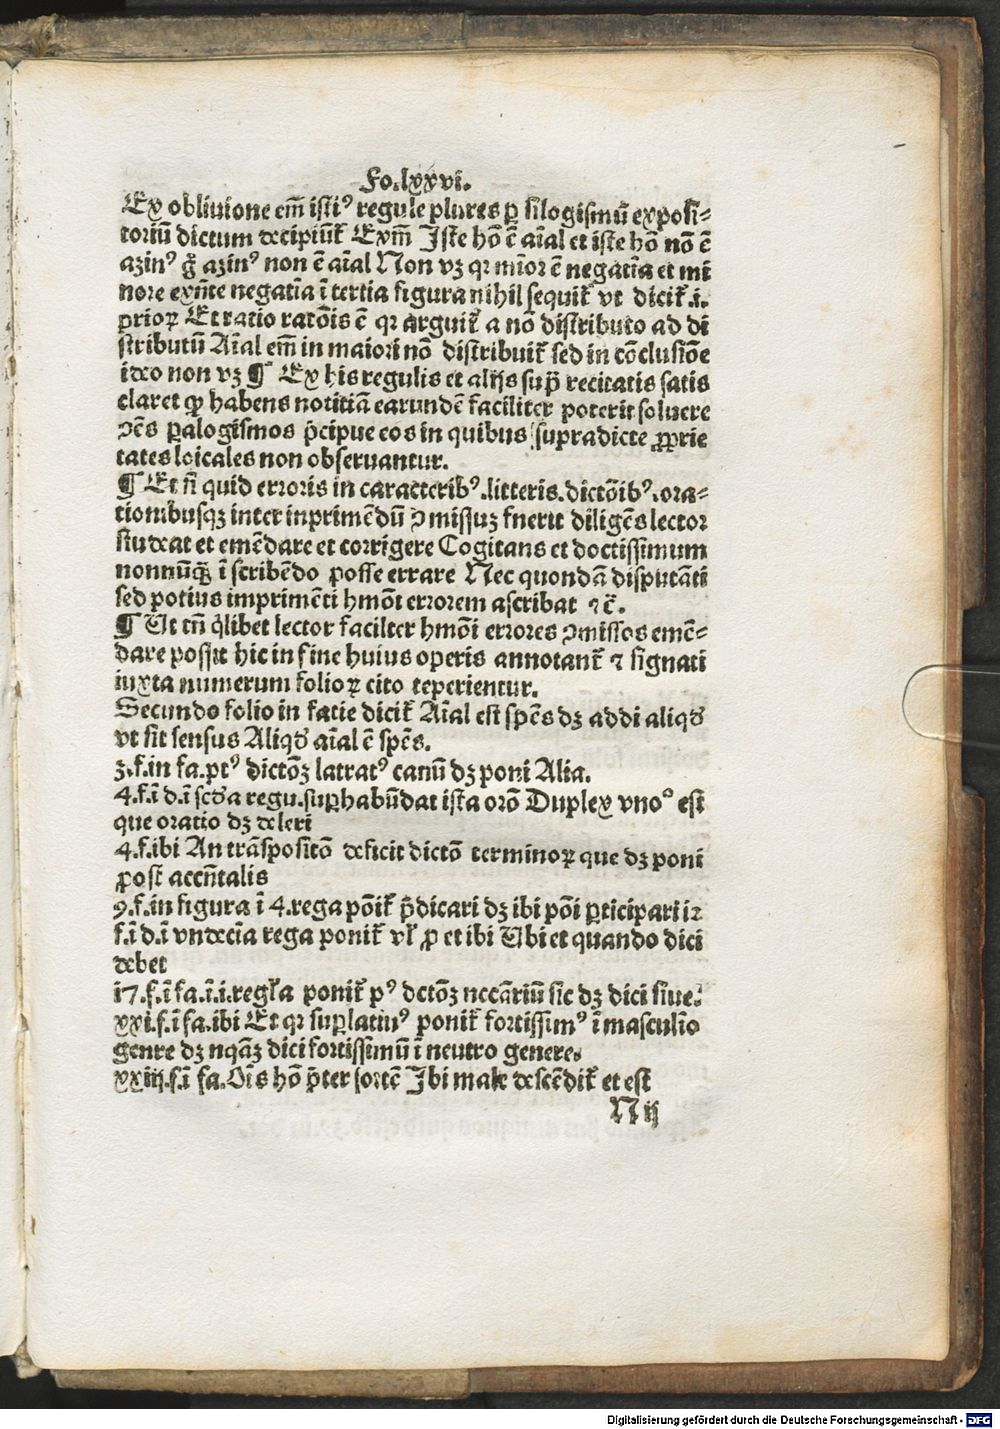 Fo.lxxvi.
Ex obliuione em̄ isti⁹ regule plures ꝑ silogismū exposi-
toriū dictum decipiūt᷑ Exm̄ Iste hō ē aīal et iste hō nō ē
azin⁹ gͦ azin⁹ non ē aīal Non vꝫ qꝛ mīor ē negatīa et mi
nore exn̄te negatīa ī tertia figura nihil sequit᷑ vt dicit᷑.i.
prioꝝ Et ratio ratōis ē qꝛ arguit᷑ a nō distributo ad di
stributū Aīal em̄ in maiori nō distribuit᷑ sed in cōclusiōe
ideo non vꝫ ¶ Ex his regulis et alijs supͣ recitatis satis
claret ꝙ habens notitiā earundē faciliter poterit soluere
oēs ꝑalogismos p̄cipue eos in quibus supradicte ꝓprie
tates loicales non obseruantur.
¶ Et si quid erroris in caracterib⁹.litteris.dictōib⁹.ora-
tionibusqꝫ inter inprimēdū ꝯmissuꝫ fnerit diligēs lector
studeat et emēdare et corrigere Cogitans et doctissimum
nonnūqͣ ī scribēdo posse errare Nec quondā disputāti
sed potius imprimēti hmōi errorem ascribat ⁊c̄.
¶ Ut tn̄ qͥlibet lector facilter hmōi errores ꝯmissos emē-
dare possit hic in fine huius operis annotant᷑ ⁊ signati
iuxta numerum folioꝝ cito teperientur.
Secundo folio in facie dicit᷑ Aīal est spēs dꝫ addi aliqd̛
vt sit sensus Aliqd̛ aīal ē spēs.
3.f.in fa.pt⁹ dictōꝫ latrat⁹ canū dꝫ poni Alia.
4.f.ī d.ī scd̛a regu.suꝑhabūdat ista orō Duplex vnoͦ est
que oratio dꝫ deleri
4.f.ibi An trāspositō deficit dictō terminoꝝ que dꝫ poni
post accn̄talis
9.f.in figura ī 4.rega pōit᷑ p̄dicari dꝫ ibi pōi ꝑticipari 12
f.ī d.ī vndecīa rega ponit᷑ vl̛ ꝓ et ibi Ubi et quando dici
debet
17.f.ī fa.ī.i.regl̛a ponit᷑ p⁹ dctōꝫ nccāriū sic dꝫ dici siue.
xxi.f.ī fa.ibi Et qꝛ suꝑlatiu⁹ ponit᷑ fortissim⁹ ī masculīo
genre dꝫ nqāꝫ dici fortissimū ī neutro genere.
xxiij.f.ī fa.Oīs hō p̄ter sortē Ibi male descēdit᷑ et est
N ij
Digitalisierung gefördert durch die Deutsche Forschungsgemeinschaft - DFG